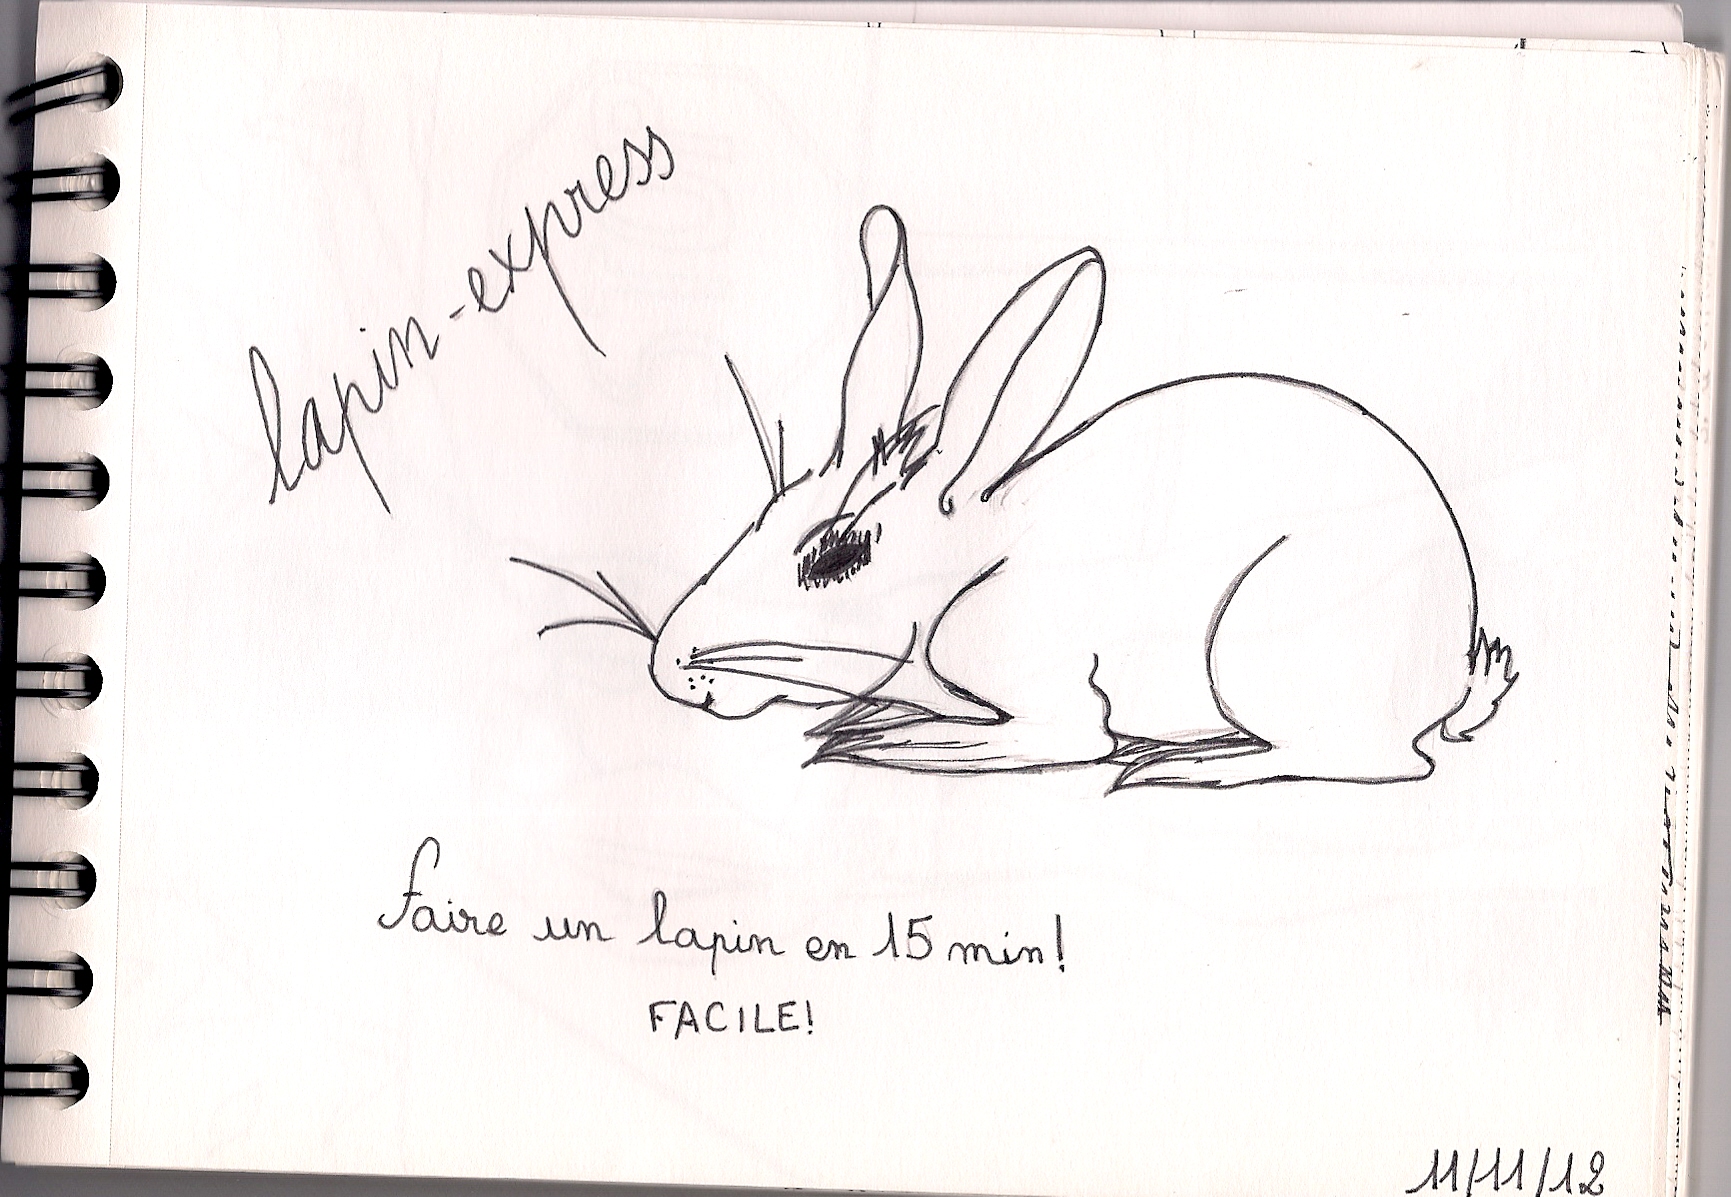 lapin-express
faire un lapin en 15 min!
FACILE!
11/11/12